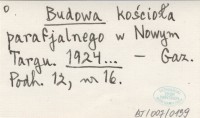 Budowa kościoła
parafjalnego w Nowym
Targu. 1924... — Gaz.
Podh. 12, nr 16.
AT/007/0139